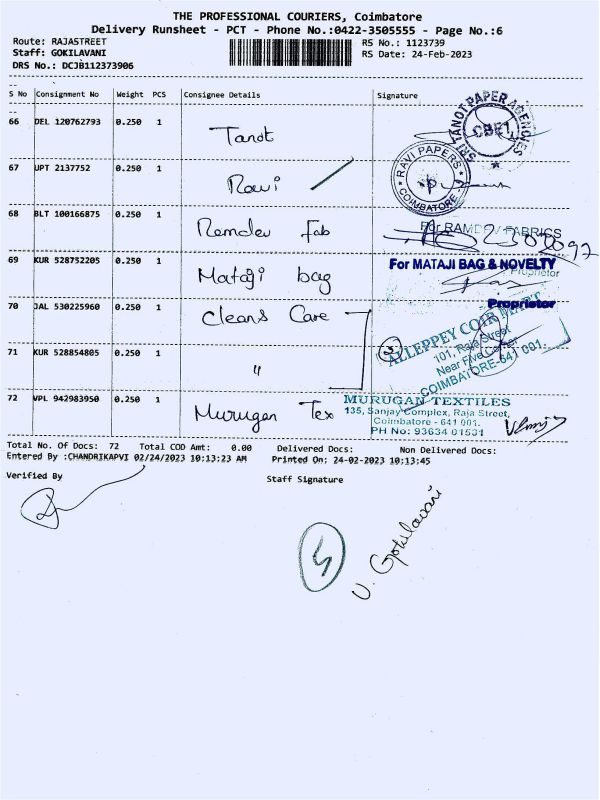 THE PROFESSIONAL COURIERS, Coimbatore
Delivery Runsheet - PCT - Phone No.:0422-3505555 - Page No.:6
Route: RAJASTREET
RS No.: 1123739
Staff: GOKILAVANI
RS Date: 24-Feb-2023
DRS No.: DCJB112373906
S No Consignment No Weight PCS Consignee Details Signature
66 DEL 120762793 0.250 1 Tanot
SRI TANOT PAPER AGENCIES
CBE-1
67 UPT 2137752 0.250 1 Ravi
RAVI PAPERS
COIMBATORE
68 BLT 100166875 0.250 1 Remdev fab
For RAMDEV FABRICS
69 KUR 528752205 0.250 1 Mataji bag
For MATAJI BAG & NOVELTY
Proprietor
Proprietor
70 JAL 530225960 0.250 1 Cleans Care
71 KUR 528854805 0.250 1 "
2
ALLEPPEY COIR MART
101, Raja Street
Near Five Corner
COIMBATORE-641 001.
72 VPL 942983950 0.250 1 Murugan Tex
MURUGAN TEXTILES
135, Sanjay Complex, Raja Street,
Coimbatore - 641 001.
PH No: 93634 01531
Total No. Of Docs: 72 Total COD Amt: 0.00 Delivered Docs: Non Delivered Docs:
Entered By :CHANDRIKAPVI 02/24/2023 10:13:23 AM Printed On: 24-02-2023 10:13:45
Verified By
Staff Signature
U. Gokilavani